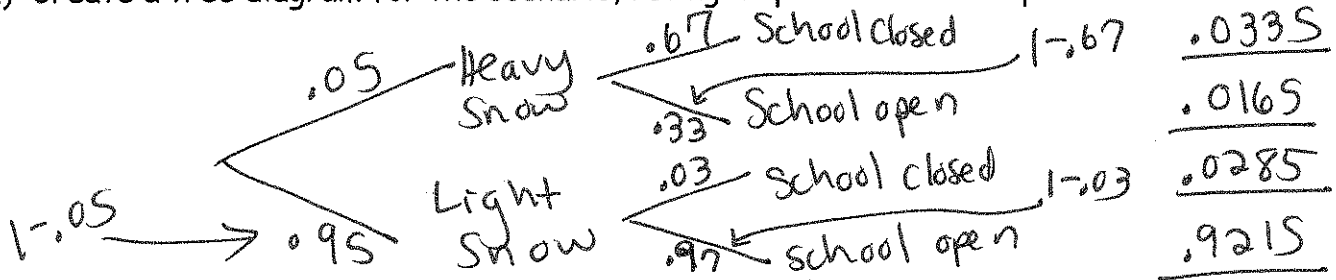 .05 Heavy Snow .67 School Closed 1-.67 .0335
.33 School open .0165
1-.05 .95 Light Snow .03 School closed 1-.03 .0285
.97 school open .9215